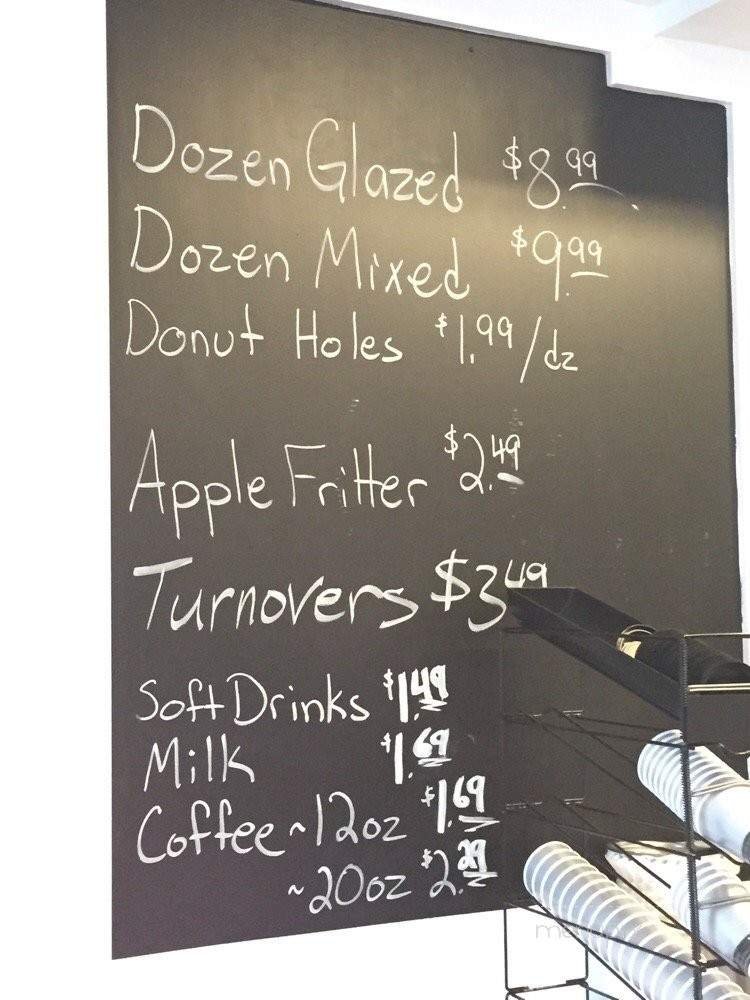 Dozen Glazed $8.99
Dozen Mixed $9.99
Donut Holes $1.99/dz
Apple Fritter $2.49
Turnovers $3.49
Soft Drinks $1.49
Milk $1.69
Coffee ~12oz $1.69
~20oz $2.29